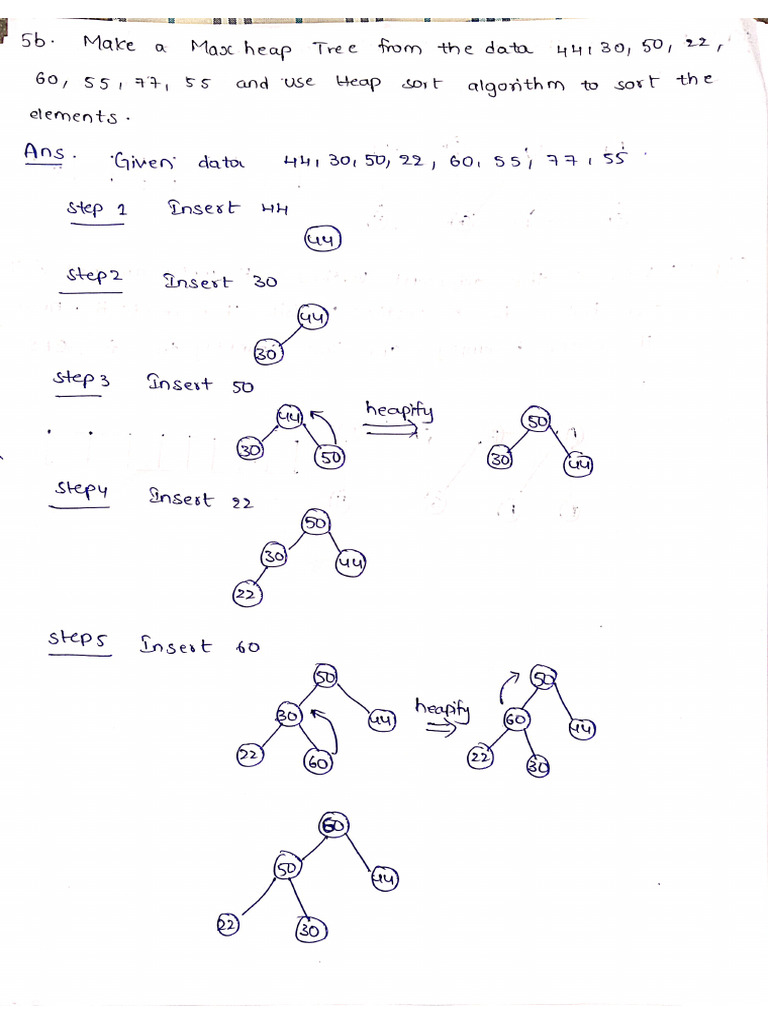 5b. Make a Max heap Tree from the data 44, 30, 50, 22,
60, 55, 77, 55 and use Heap sort algorithm to sort the
elements.
Ans. Given data 44, 30, 50, 22, 60, 55, 77, 55.
Step 1 Insert 44
44
Step 2 Insert 30
44
30
Step 3 Insert 50
44 heapify 50
30 50 30 44
Step 4 Insert 22
50
30 44
22
Step 5 Insert 60
50 50
30 44 heapify 60 44
22 60 22 30
60
50 44
22 30